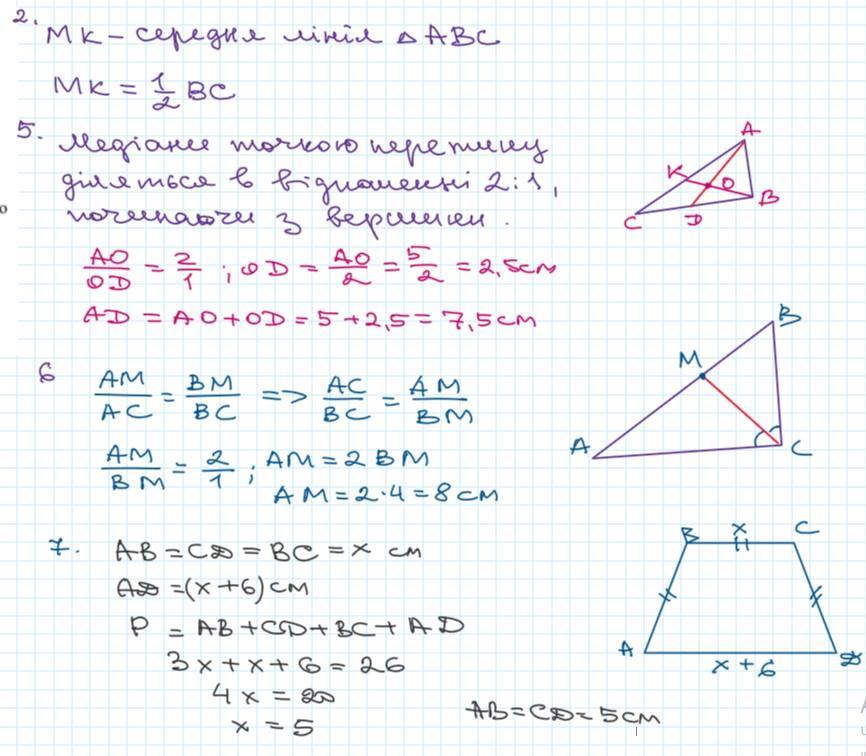 2. МК – середня лінія △ АВС
МК = 1/2 ВС
5. Медіани точкою перетину
діляться в відношенні 2:1,
починаючи з вершини.
A
K
O
B
C
D
AO/OD = 2/1 ; OD = AO/2 = 5/2 = 2,5см
AD = AO + OD = 5 + 2,5 = 7,5 см
B
M
A
C
6 AM/AC = BM/BC => AC/BC = AM/BM
AM/BM = 2/1 ; AM = 2 BM
AM = 2·4 = 8 см
7. AB = CD = BC = x см
AD = (x + 6) см
P = AB + CD + BC + AD
3x + x + 6 = 26
4x = 20
x = 5
AB = CD = 5 см
B
x
C
A
x + 6
D